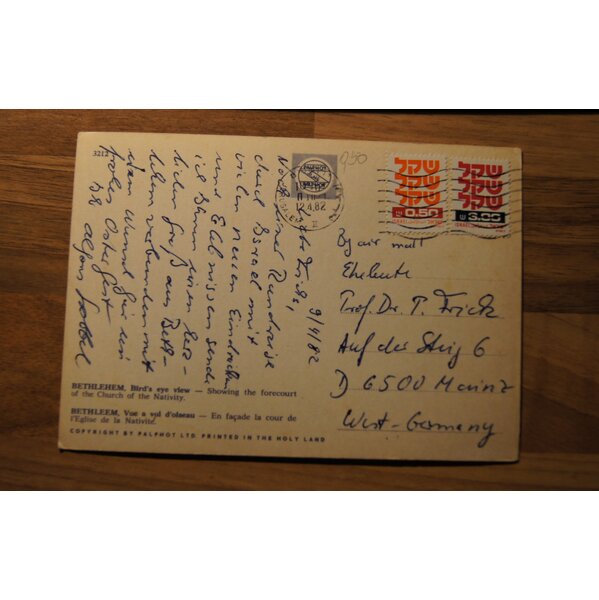 3212
9/4/82
Liebe Fricks,
Nach einer Rundreise
durch Israel mit
vielen neuen Eindrücken
und Erlebnissen sende
ich Ihnen einen herz-
lichen Gruß aus Beth-
lehem verbunden mit
dem Wunsch für ein
frohes Osterfest
Ihr Alfons
BETHLEHEM, Bird's eye view — Showing the forecourt
of the Church of the Nativity.
BETHLEEM, Vue a vol d'oiseau — En façade la cour de
l'Eglise de la Nativité.
COPYRIGHT BY PALPHOT LTD. PRINTED IN THE HOLY LAND
PALPHOT
12.4.82
050
שקל
שקל
שקל
0.50
ISRAEL
שקל
שקל
שקל
3.00
ISRAEL
By air mail
Eheleute
Prof. Dr. P. Frick
Auf der Steig 6
D 6500 Mainz
West-Germany